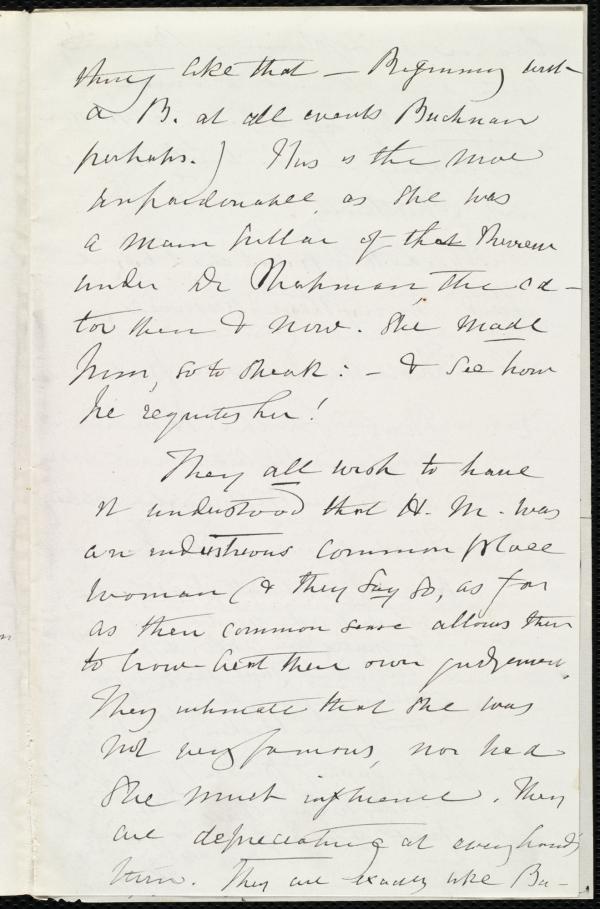 thing like that – Beginning with
a B. at all events Buchnan
perhaps.) This is the more
unpardonable as she was
a main pillar of that Review
under Dr Chapman the edi-
tor then & now. She made
him, so to speak: – & see how
he requites her!
They all wish to have
it understood that H. M. was
an industrious common place
woman (& they say so, as far
as their common sense allows them
to brow-beat their own judgement.
They intimate that she was
not very famous, nor had
she much influence. They
are depreciating at every hand's
turn. They are exactly like Ba-